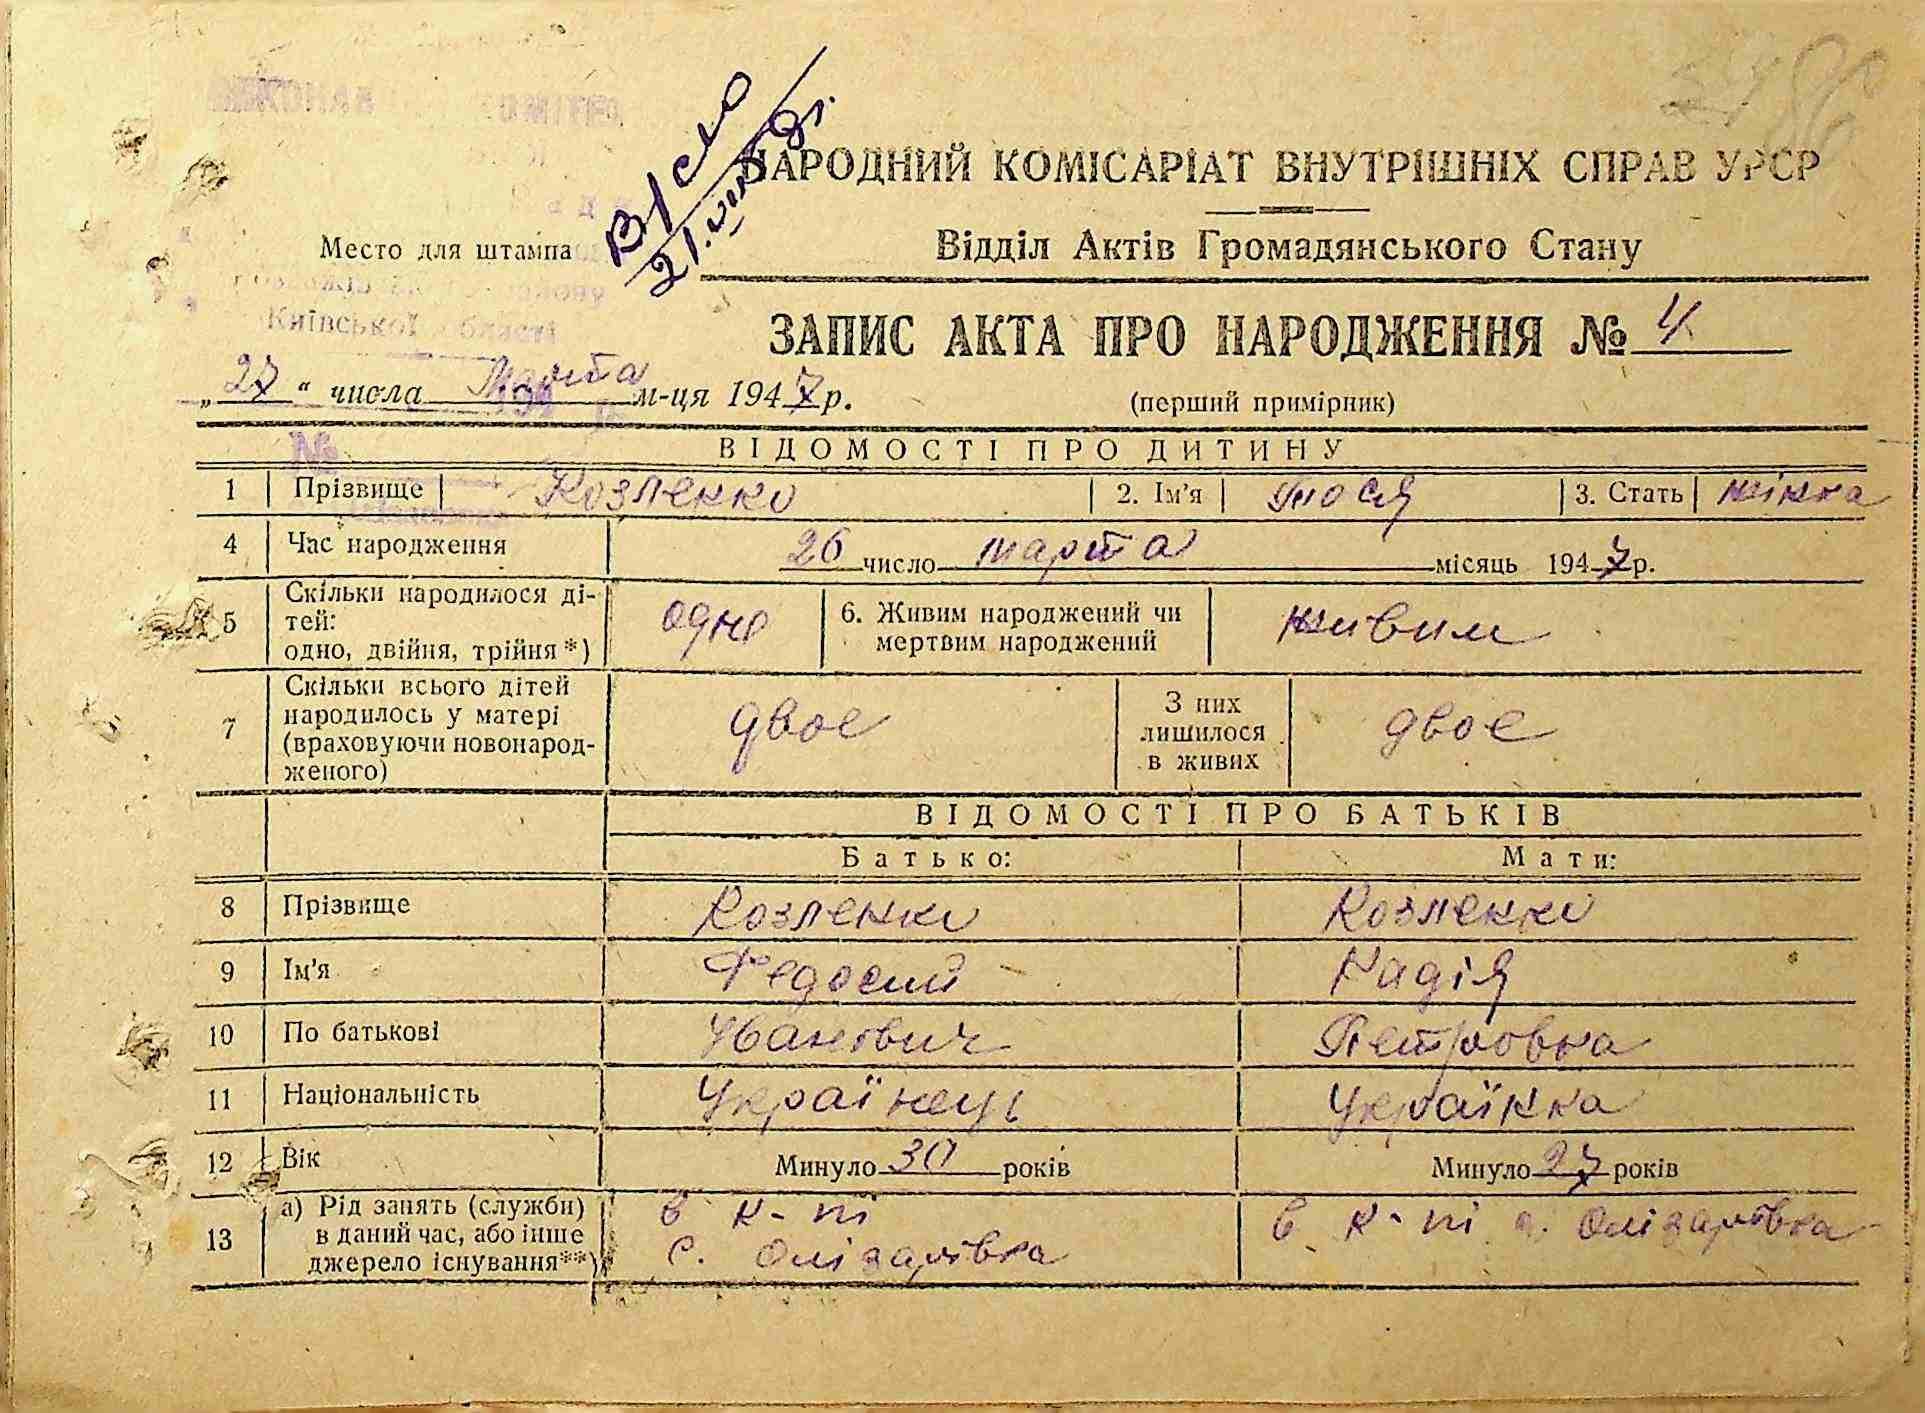 86
В/сло
21.VIII
НАРОДНИЙ КОМІСАРІАТ ВНУТРІШНІХ СПРАВ УРСР
Место для штампа
Відділ Актів Громадянського Стану
Київської області
ЗАПИС АКТА ПРО НАРОДЖЕННЯ № 4
„27“ числа Марта м-ця 1947 р.
(перший примірник)
№
ВІДОМОСТІ ПРО ДИТИНУ
1 Прізвище Козленко 2. Ім'я Тося 3. Стать жінка
4 Час народження 26 число марта місяць 1947 р.
5 Скільки народилося ді-
тей:
одно, двійня, трійня*) одно 6. Живим народжений чи
мертвим народжений живим
7 Скільки всього дітей
народилось у матері
(враховуючи новонарод-
женого) двоє З них
лишилося
в живих двоє
ВІДОМОСТІ ПРО БАТЬКІВ
Батько: Мати:
8 Прізвище Козленко Козленко
9 Ім'я Федосий Надія
10 По батькові Иванович Петровна
11 Національність Українець Українка
12 Вік Минуло 30 років Минуло 27 років
13 а) Рід занять (служби)
в даний час, або інше
джерело існування**) в к-пі
с. Олізарівка в к-пі с. Олізарівка